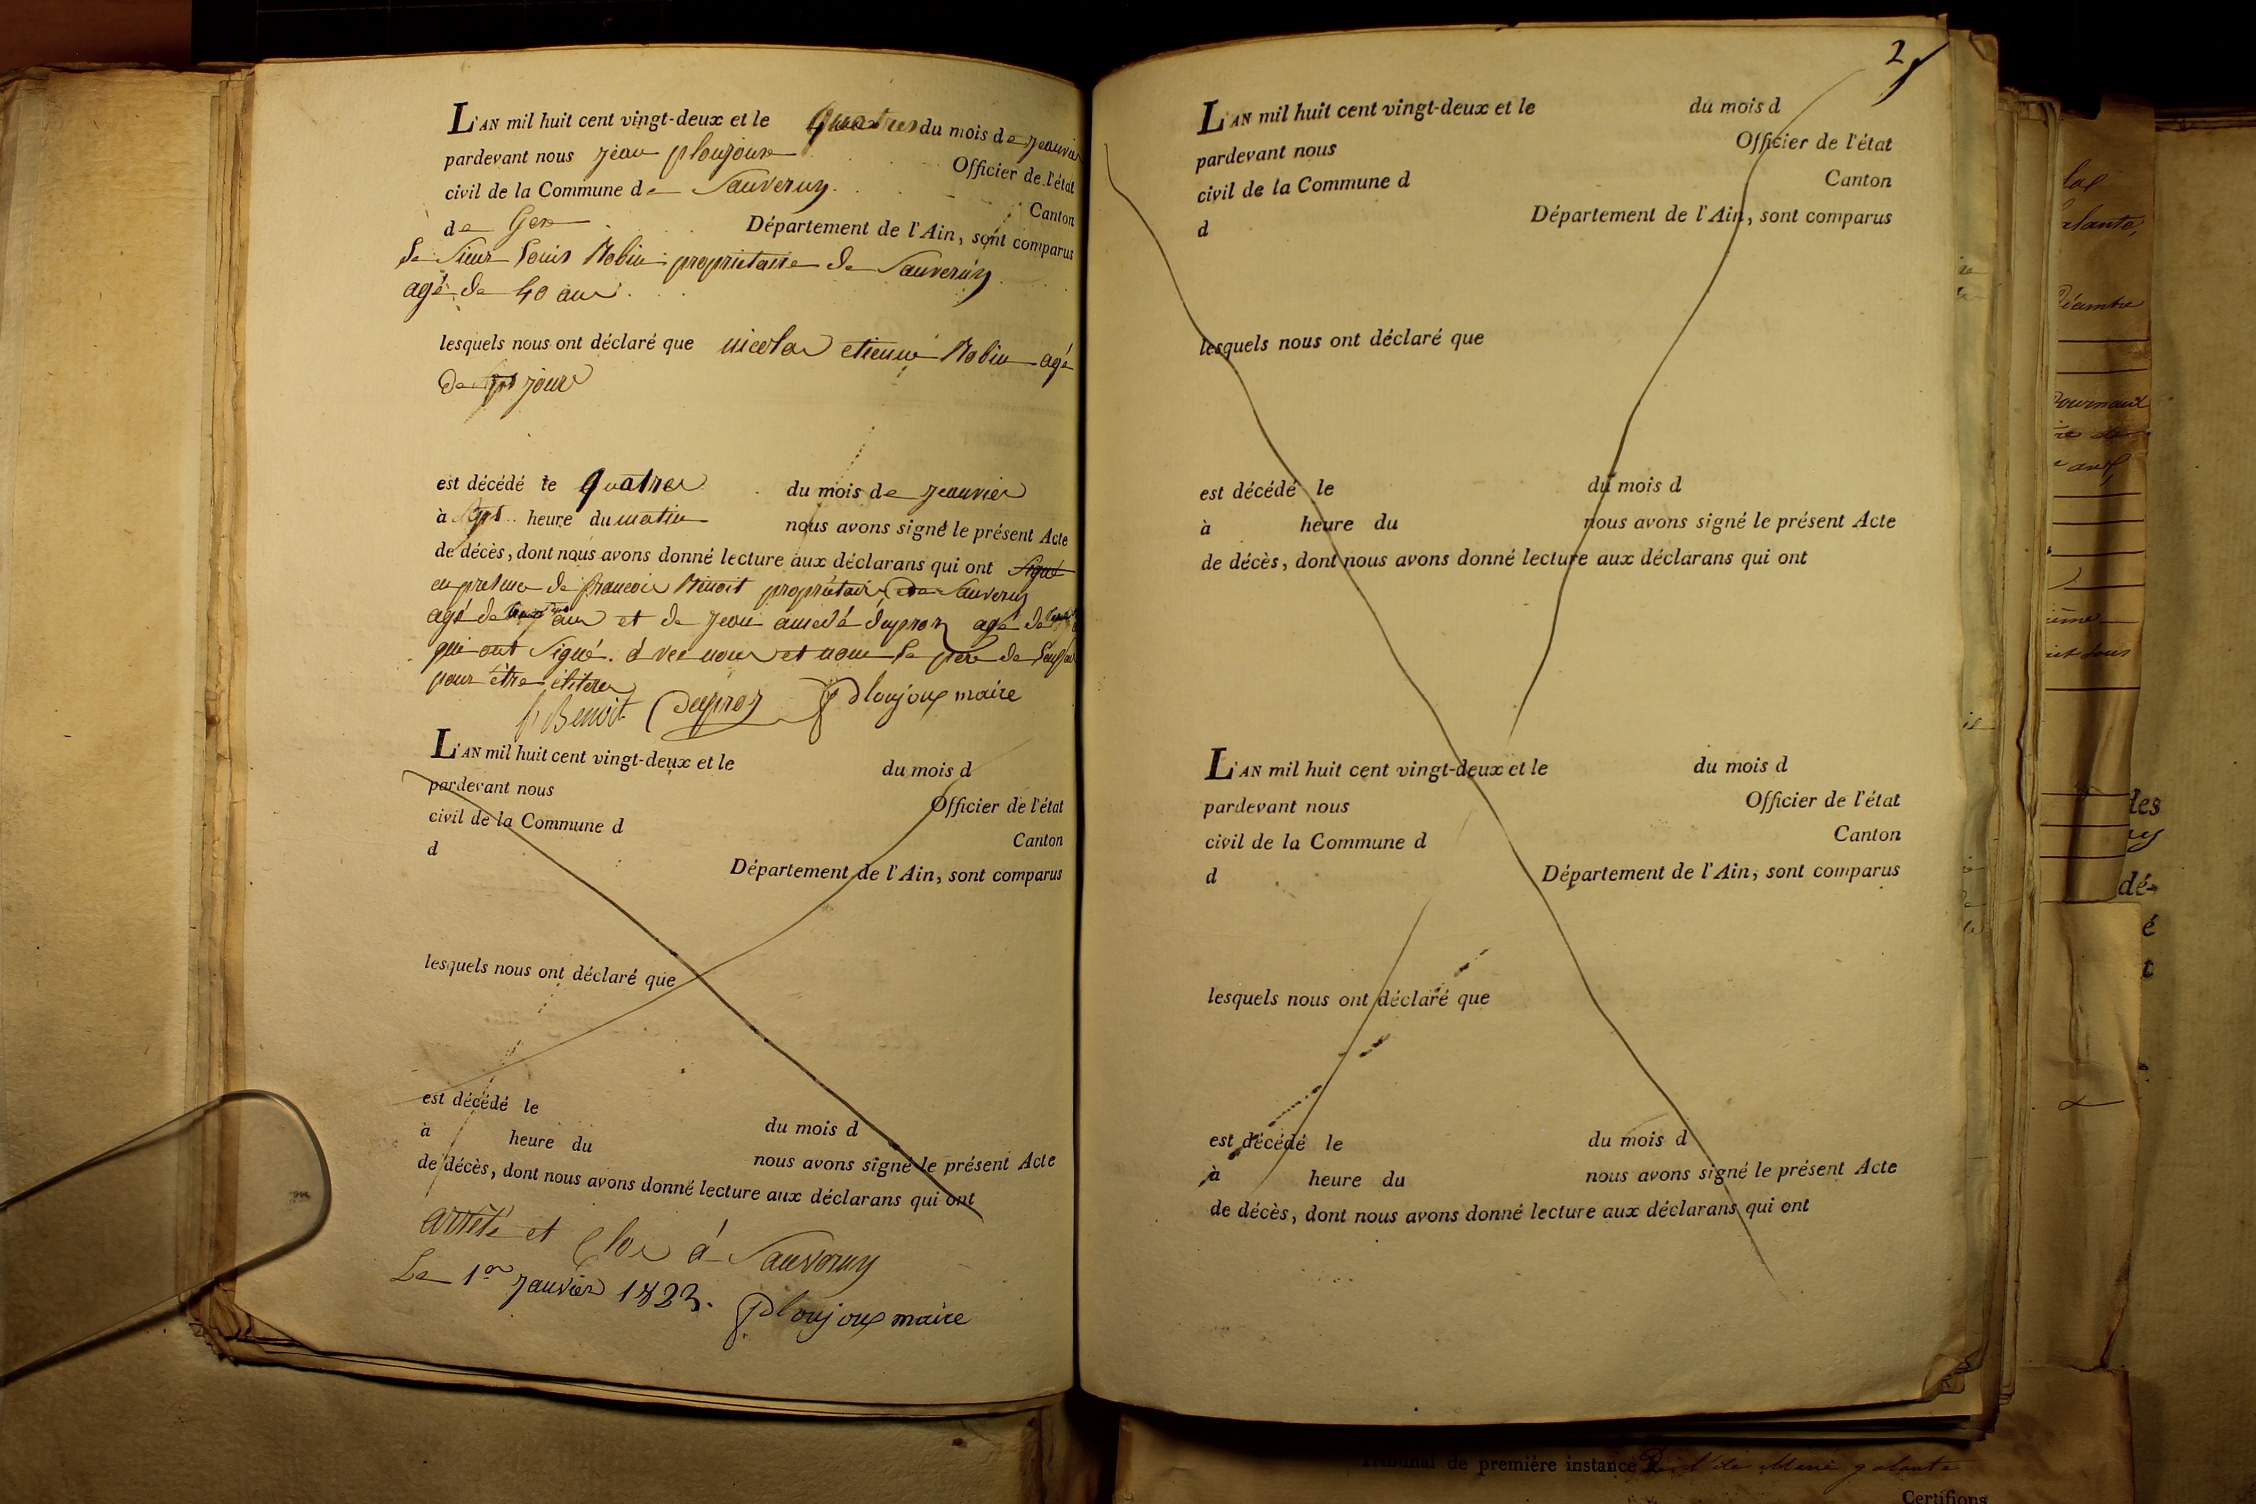 L'AN mil huit cent vingt-deux et le quatres du mois de jeanvier
pardevant nous jean ploujoux Officier de l'état
civil de la Commune de Sauverny Canton
de Gex Département de l'Ain, sont comparus
Le Sieur Louis Robin propriétaire de Sauverny
agé de 40 ans
lesquels nous ont déclaré que nicolas etienne Robin agé
de sept jours
est décédé le quatres du mois de jeanvier
à sept heure du matin nous avons signé le présent Acte
de décès, dont nous avons donné lecture aux déclarans qui ont signé
en presence de francois Benoit propriétaire de Sauverny
agé de ans et de jean amedé dupraz agé de
qui ont signé avec nous et nous Le père de
pour être
f Benoit Dupraz Ploujoux maire
L'AN mil huit cent vingt-deux et le du mois d
pardevant nous Officier de l'état
civil de la Commune d Canton
d Département de l'Ain, sont comparus
lesquels nous ont déclaré que
est décédé le du mois d
à heure du nous avons signé le présent Acte
de décès, dont nous avons donné lecture aux déclarans qui ont
arrêté et clos à Sauverny
Le 1er janvier 1823.
Ploujoux maire
2
L'AN mil huit cent vingt-deux et le du mois d
pardevant nous Officier de l'état
civil de la Commune d Canton
d Département de l'Ain, sont comparus
lesquels nous ont déclaré que
est décédé le du mois d
à heure du nous avons signé le présent Acte
de décès, dont nous avons donné lecture aux déclarans qui ont
L'AN mil huit cent vingt-deux et le du mois d
pardevant nous Officier de l'état
civil de la Commune d Canton
d Département de l'Ain, sont comparus
lesquels nous ont déclaré que
est décédé le du mois d
à heure du nous avons signé le présent Acte
de décès, dont nous avons donné lecture aux déclarans qui ont
Tribunal de première instance
Certifions